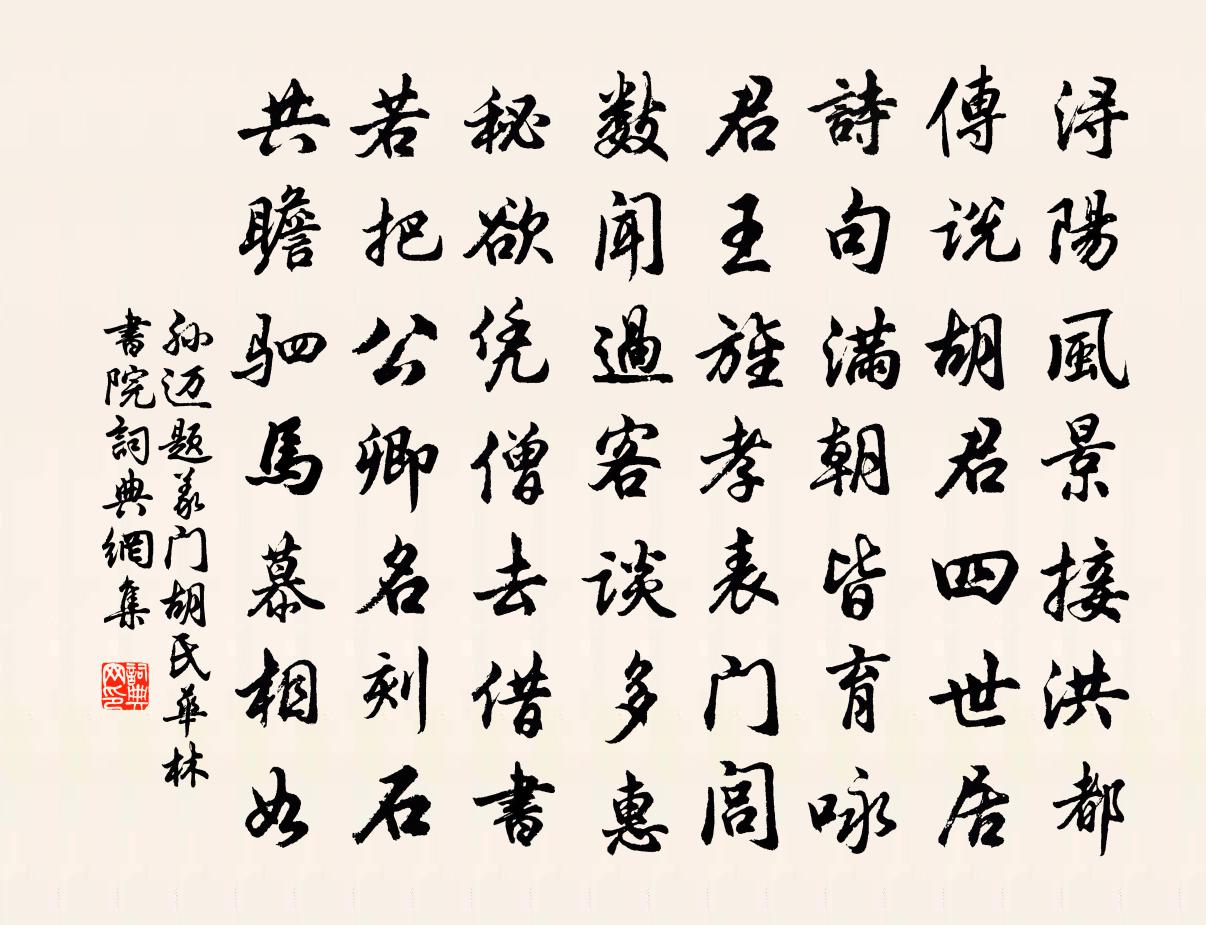 浔陽風景接洪都
傳说胡君四世居
詩句满朝皆育咏
君王旌孝表门闾
数闻過客谈多惠
秘欲凭僧去借書
若把公卿名刻石
共瞻驷馬慕相如
孙迈题义门胡氏華林
書院詞典網集
詞典网印